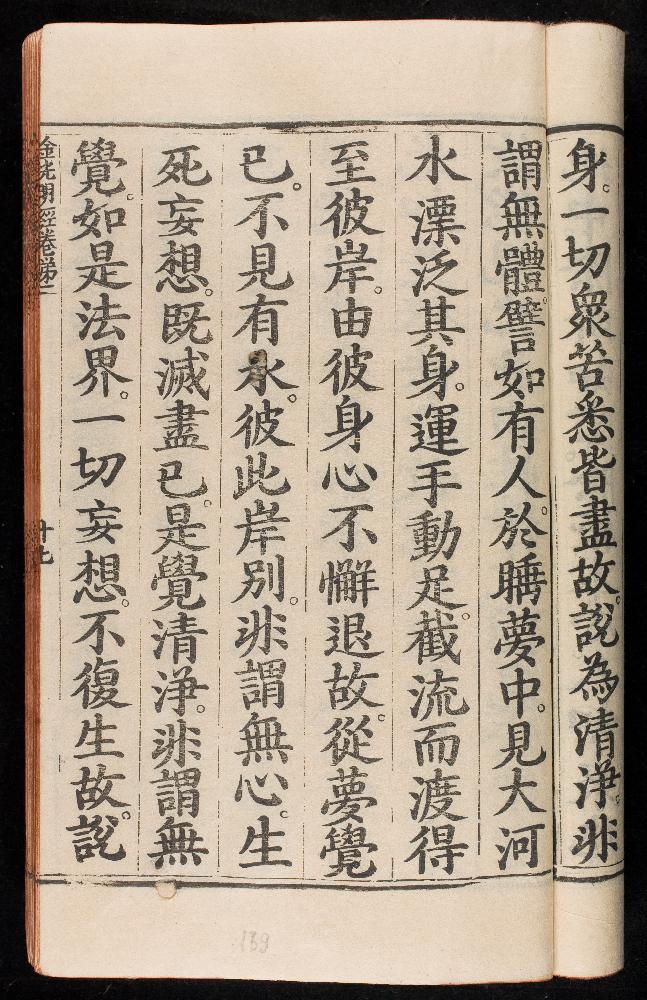 身。一切衆苦悉皆盡故。說為清淨。非
謂無體。譬如有人。於睡夢中。見大河
水漂泛其身。運手動足。截流而渡。得
至彼岸。由彼身心不懈退故。從夢覺
已。不見有水。彼此岸別。非謂無心。生
死妄想。既滅盡已。是覺清淨。非謂無
覺。如是法界。一切妄想。不復生故。說
金光明經卷第二
十七
139